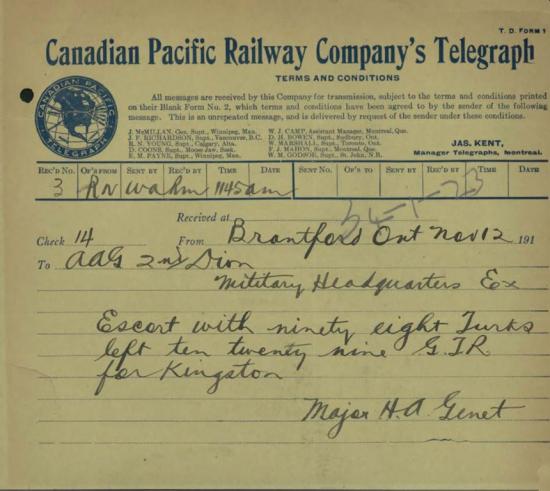 T. D. FORM 1
Canadian Pacific Railway Company's Telegraph
TERMS AND CONDITIONS
CANADIAN PACIFIC
TELEGRAPH
All messages are received by this Company for transmission, subject to the terms and conditions printed
on their Blank Form No. 2, which terms and conditions have been agreed to by the sender of the following
message. This is an unrepeated message, and is delivered by request of the sender under these conditions.
J. McMILLAN, Gen. Supt., Winnipeg, Man.
J. F. RICHARDSON, Supt., Vancouver, B.C.
R. N. YOUNG, Supt., Calgary, Alta.
D. COONS, Supt., Moose Jaw, Sask.
E. M. PAYNE, Supt., Winnipeg, Man.
W. J. CAMP, Assistant Manager, Montreal, Que.
D. H. BOWEN, Supt., Sudbury, Ont.
W. MARSHALL, Supt., Toronto, Ont.
F. J. MAHON, Supt., Montreal, Que.
W. M. GODSOE, Supt., St. John, N.B.
JAS. KENT,
Manager Telegraphs, Montreal.
REC'D NO. OP'S FROM SENT BY REC'D BY TIME DATE SENT NO. OP'S TO SENT BY REC'D BY TIME DATE
3 RN wa Rm 1145am
34-1-23
Received at
Check 14 From Brantford Ont Nov 12 191
To AAG 2nd Divn
Military Headquarters Ex
Escort with ninety eight Turks
left ten twenty nine G.T.R.
for Kingston
Major H. A. Genet